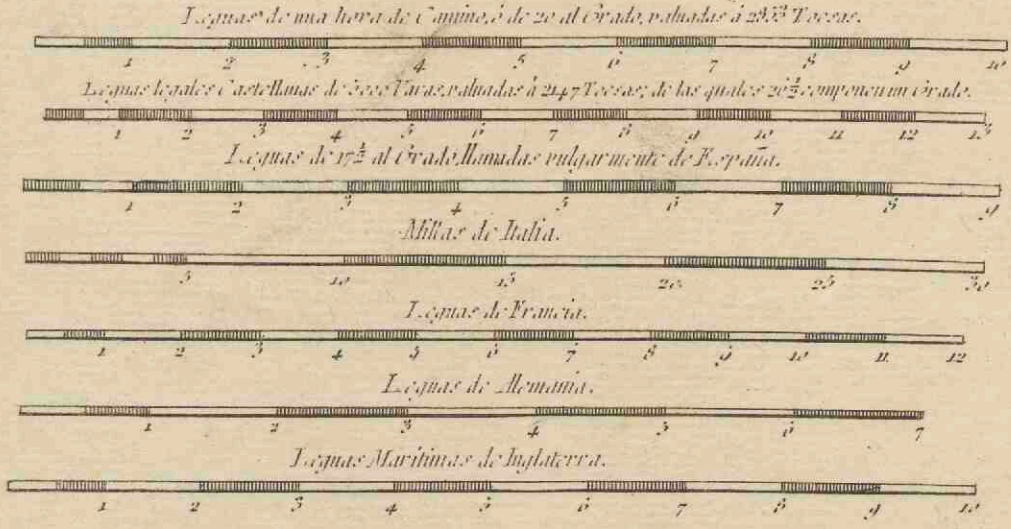 Leguas de una hora de Camino, ó de 20 al Grado, valuadas á Toesas.
1 2 3 4 5 6 7 8 9 10
Leguas legales Castellanas de 5000 Varas, valuadas á 2147 Toesas; de las quales 26½ componen un Grado.
1 2 3 4 5 6 7 8 9 10 11 12 13
Leguas de 17½ al Grado, llamadas vulgarmente de España.
1 2 3 4 5 6 7 8 9
Millas de Italia.
5 10 15 20 25 30
Leguas de Francia.
1 2 3 4 5 6 7 8 9 10 11 12
Leguas de Alemania.
1 2 3 4 5 6 7
Leguas Marítimas de Inglaterra.
1 2 3 4 5 6 7 8 9 10